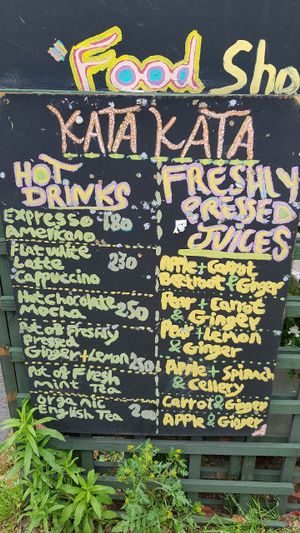 Food Sho
KATA KATA
HOT
DRINKS
Expresso 180
Amerikano
Flat white
Late 230
Cappuccino
Hot chocolate
Mocha 250
Pot of Freshly
pressed
Ginger + Lemon 250
Pot of Fresh
mint Tea
organic
English Tea 200
FRESHLY
PRESSED
JUICES
Apple + Carrot
Beetroot & Ginger
Pear + Carrot
& Ginger
Pear + Lemon
& Ginger
Apple + Spinach
& Cellery
Carrot & Ginger
Apple & Ginger